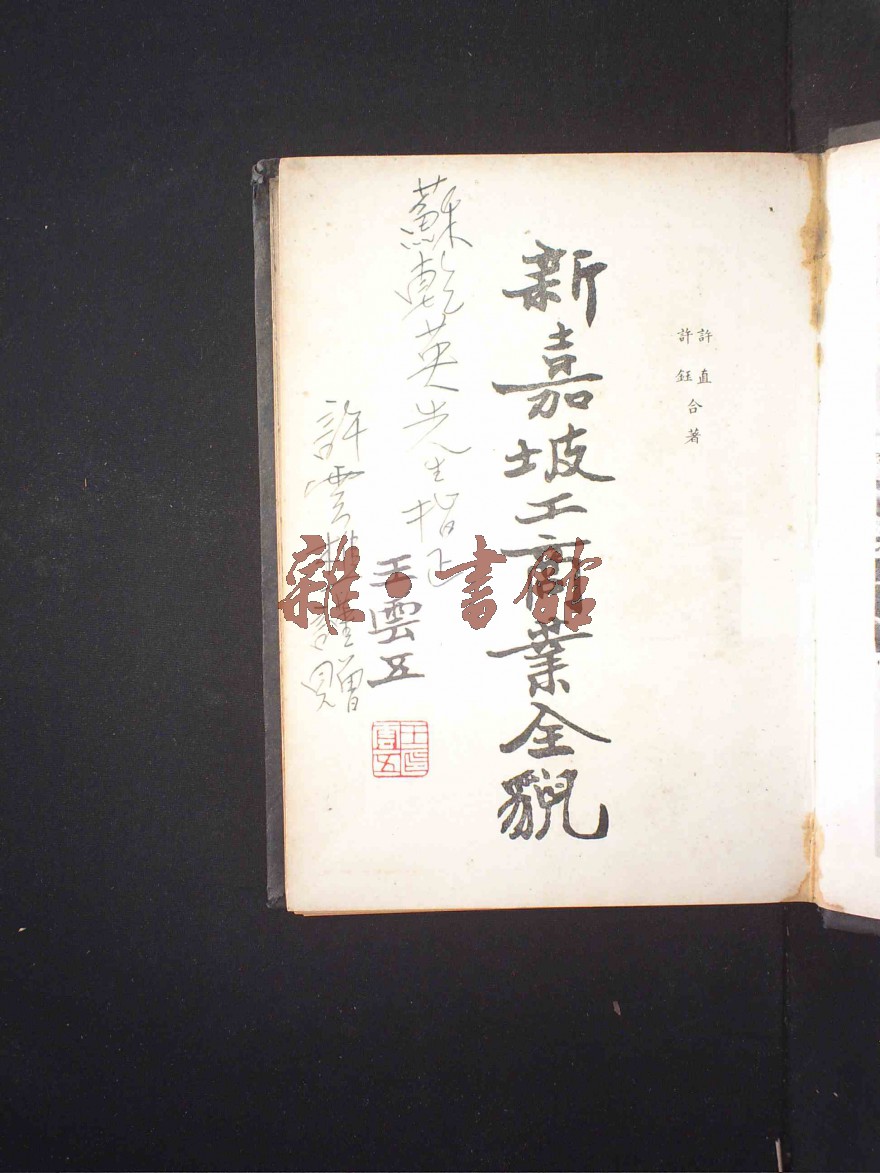 許直
許鈺
合著
新嘉坡工商業全貌
蘇乾英先生指正
王雲五
王印雲五
許雲樵謹贈
雜·書館